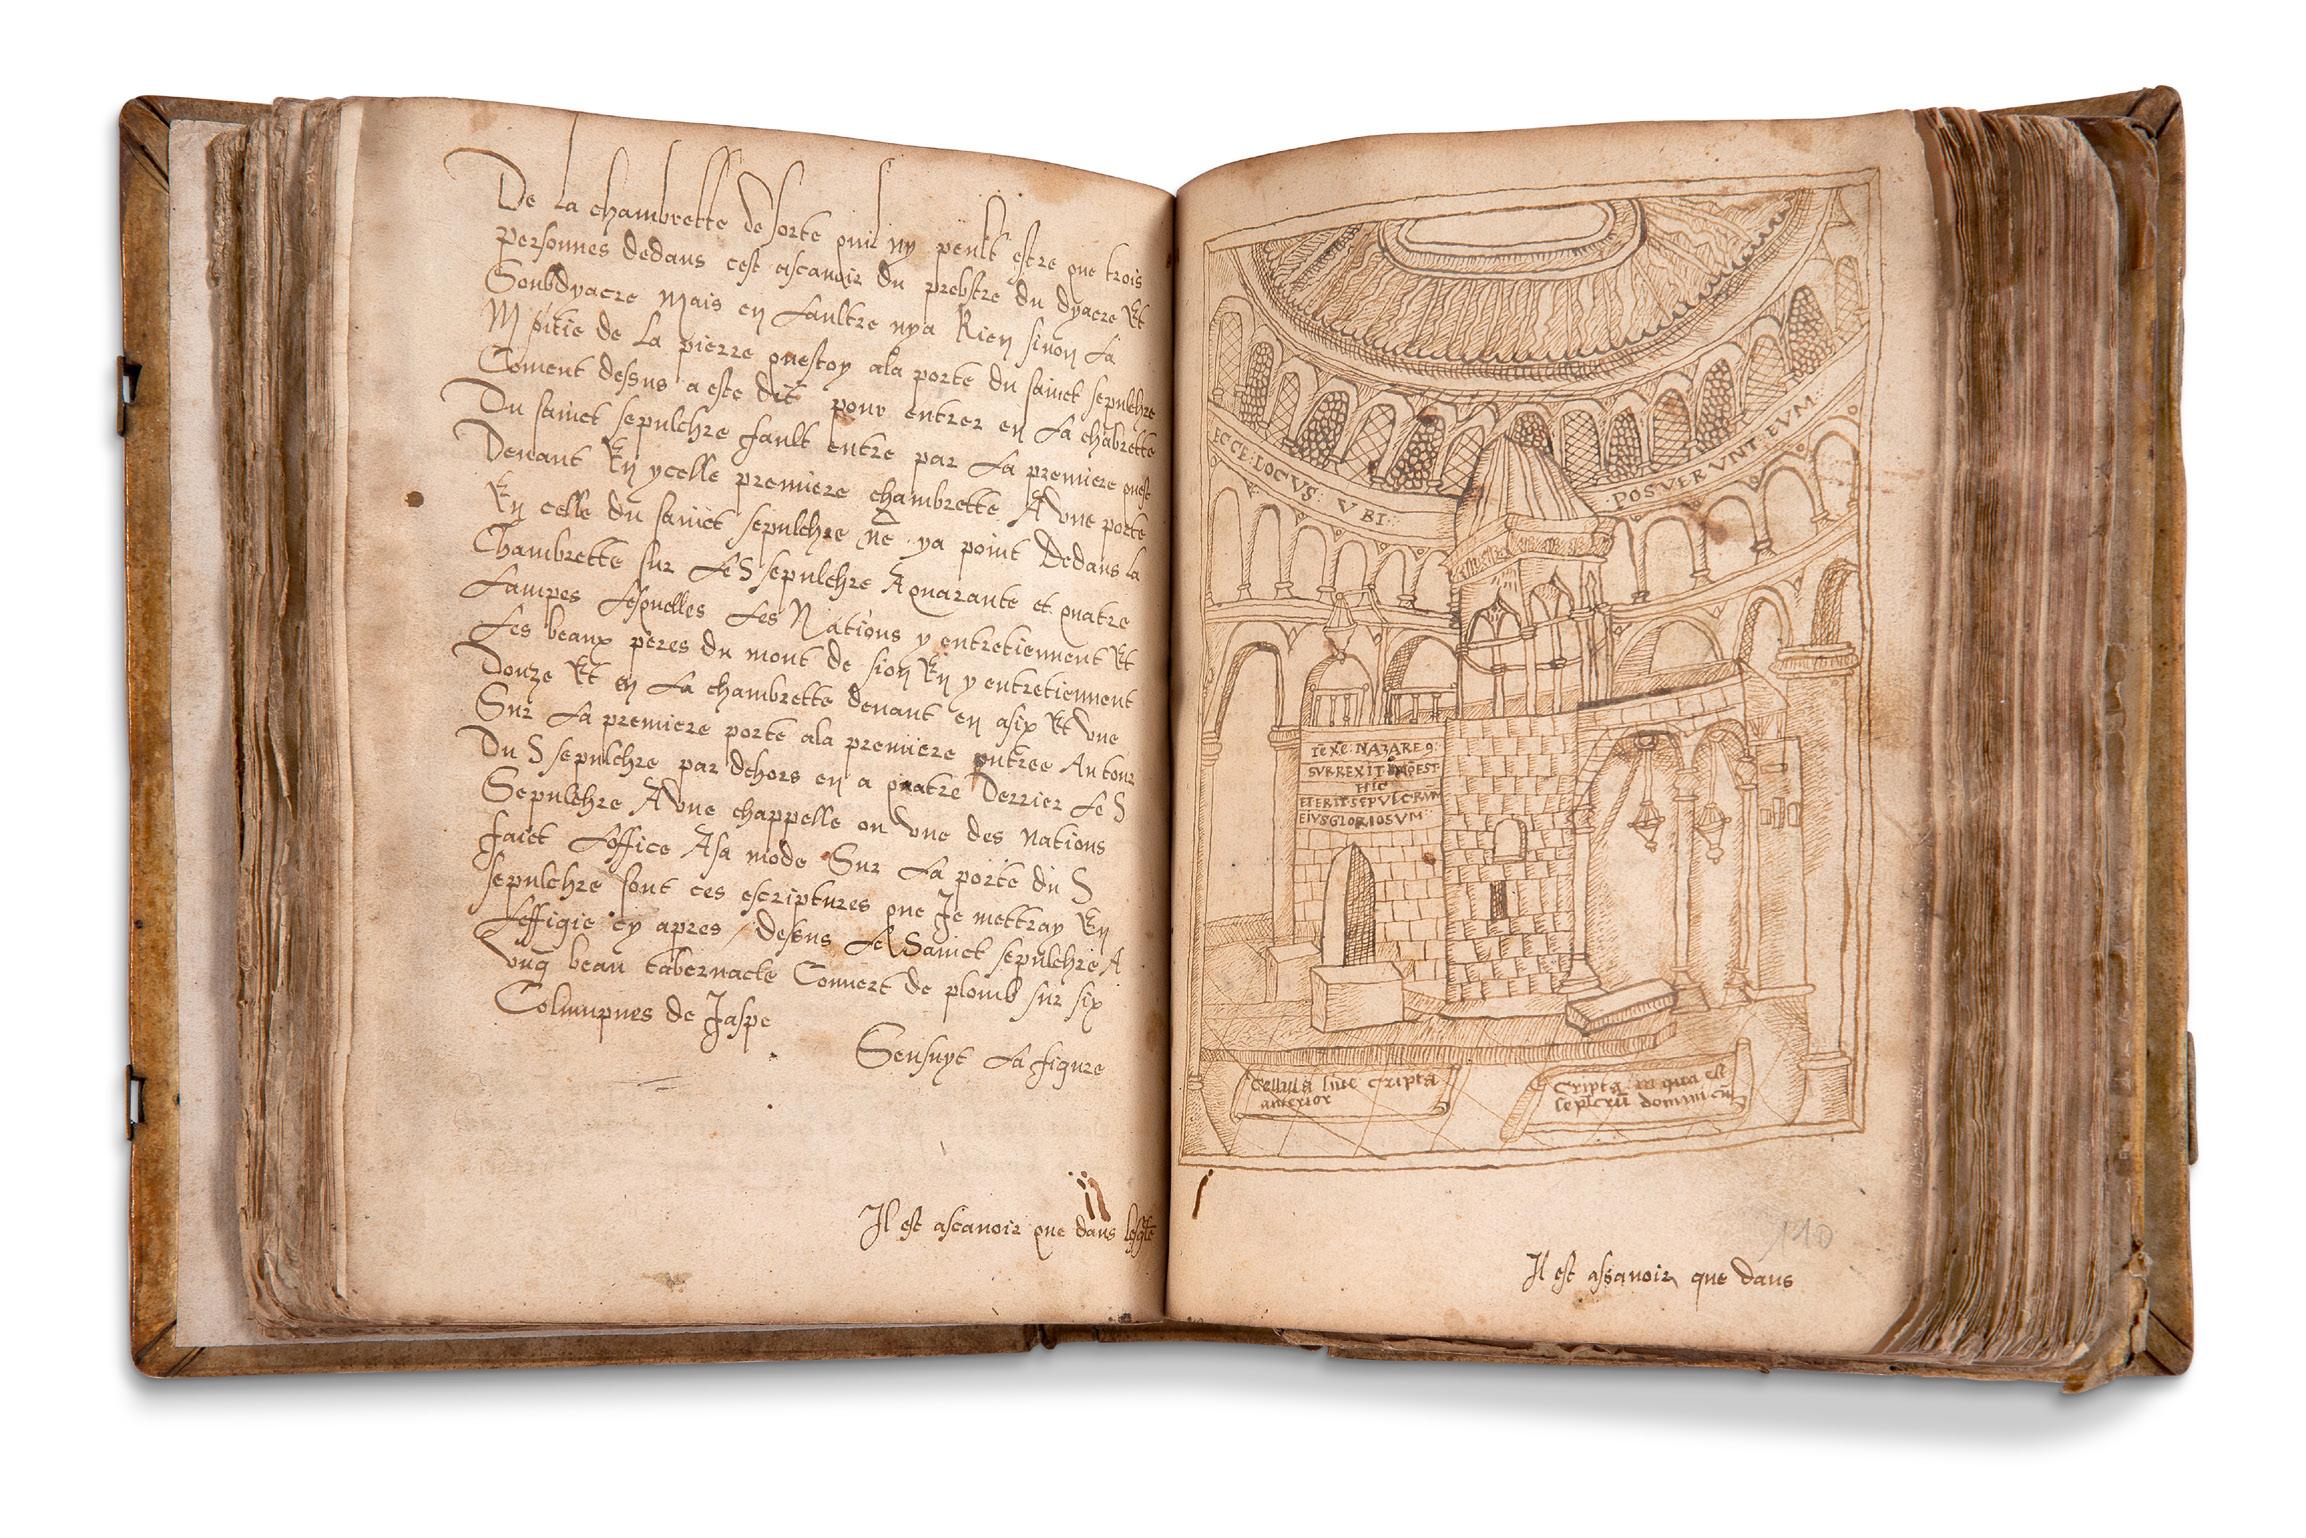 De la chambrette de sorte quil ny peult estre que trois
personnes dedans cest ascauoir du prebstre du dyacre Et
Soubdyacre Mais en Laultre nya Rien sinon La
Mpitie de La pierre questoy ala porte du sainct sepulchre
Coment dessus a este dit pour entrer en La chabrette
Du sainct sepulchre fault entre par La premiere quest
Deuant En ycelle premiere chambrette A vne porte
En celle du sainct sepulchre ne ya point Dedans la
Chambrette sur Le S sepulchre A quarante et quatre
Lampes Lesquelles Les Nations y entretiennent Et
Les beaux peres du mont de sion En y entretiennent
Douze Et en La chambrette deuant en a six Et vne
Sur La premiere porte ala premiere entree Autour
Du S sepulchre par dehors en a quatre Derrier Le S
Sepulchre A vne chappelle ou vne des Nations
faict Loffice A sa mode Sur La porte du S
sepulchre sont ces escriptures que Je mettray En
Leffigie cy apres / dessus Le Sainct sepulchre A
vnq beau tabernacle Conuert de plomb sur six
Columpnes de Jaspe
Sensuyt La figure
ij
Il est ascauoir que dans lesgle
ECCE·LOCVS·VBI· POSVERVNT·EVM·
IEXE·NAZARE9·
SVRREXIT EST·
HIC
ET·ERIT·SEPVLCRVM
EIVS·GLORIOSVM
Cellula siue cripta
anterior
Cripta in qua est
seplcru dominicu
j
110
Il est assauoir que dans